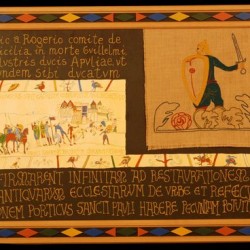 o a Rogerio comite de
icilia, in morte Guillelmi
lustris ducis Apuliae, ut
ndem Sibi ducatum
FIRMARENT INFINITAM AD RESTAURATIONEM
ANTIQUARUM ECCLESIARUM DE URBE ET REFEC
NEM PORTICUS SANCTI PAULI HABERE PECUNIAM POTUIT